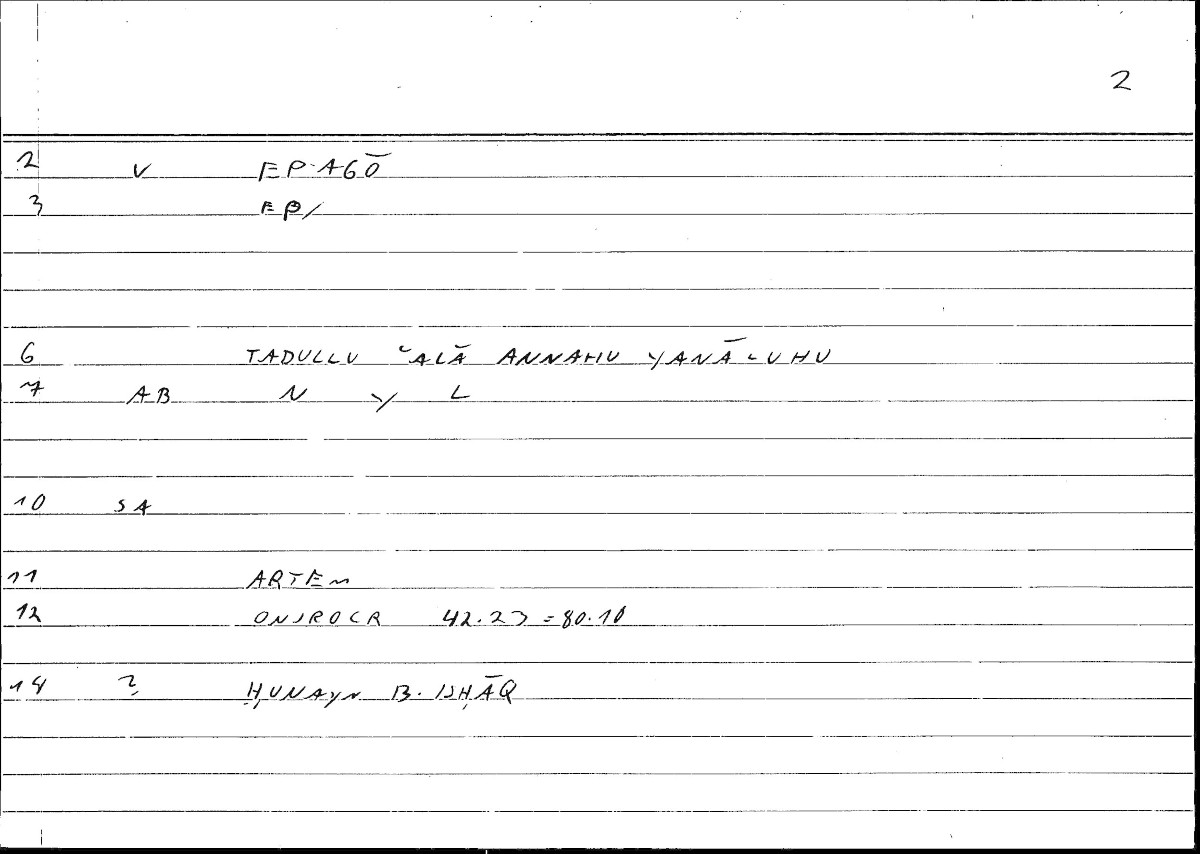 2
2 V EP-AGŌ
3 EP/
6 TADULLU ʿALĀ ANNAHU YANĀLUHU
7 AB N Y L
10 SA
11 ARTEM
12 ONIROCR 42.23 = 80.10
14 2 ḤUNAYN B. ISḤĀQ